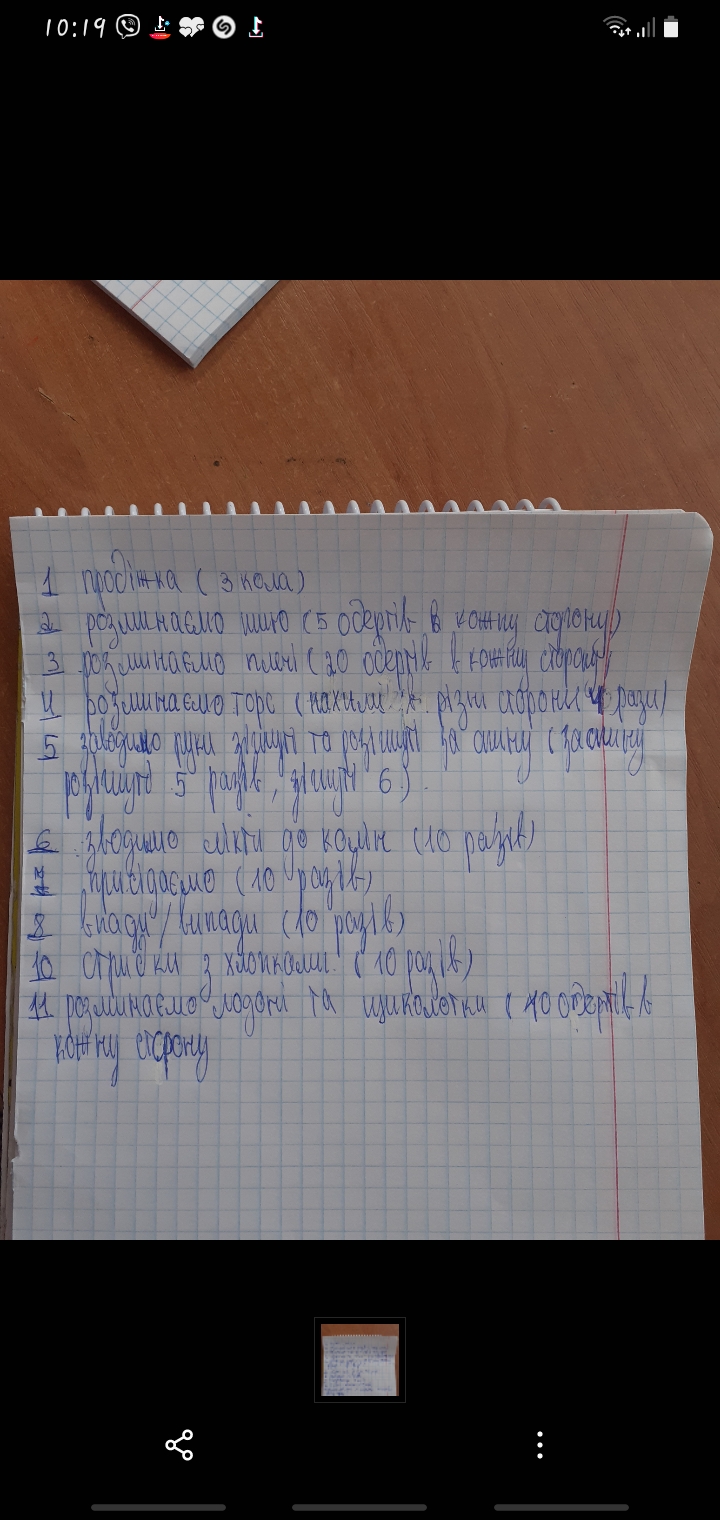 10:19
1 пробіжка (3 кола)
2 розминаємо шию (5 обертів в кожну сторону)
3 розминаємо плечі (20 обертів в кожну сторону)
4 розминаємо торс (нахили різні сторони 4 рази)
5 заводимо руки зігнуті та розігнуті за спину (за спину
розігнуті 5 разів, зігнуті 6).
6 зводимо лікті до колін (10 разів)
7 присідаємо (10 разів)
8 впади/випади (10 разів)
10 стрибки з хлопками. (10 разів)
11 розминаємо лодоні та щиколотки (10 обертів в
кожну сторону